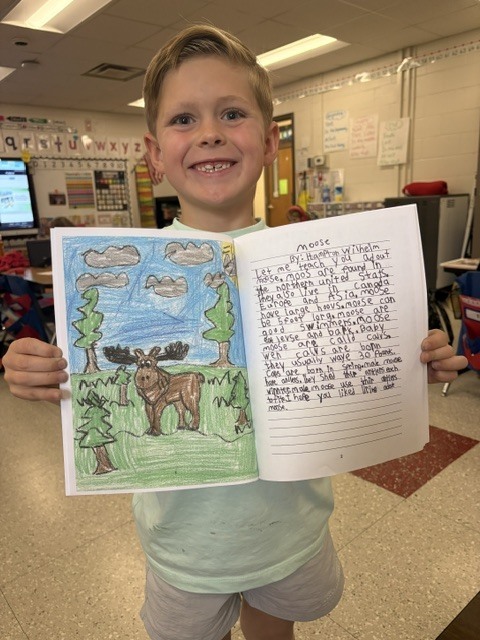 Moose
By: Hampton Wilhelm
Let me teach you adout
moose. Moos are found in
the northern united stats.
they also live in canada
Europe and ASia. moose
have large hoovs. moose can
be 5foot long. moose are
good swimmers. moose
eat levse and bark. Baby
moose are calld calvs.
wen calvs are born
they usually waye 30 Pounds.
Cavs are born in Spring. male moose
have antlers. they Shed their antlers each
winter. male moose use their antlers
to fight. I hope you liked lrning adot
moose.